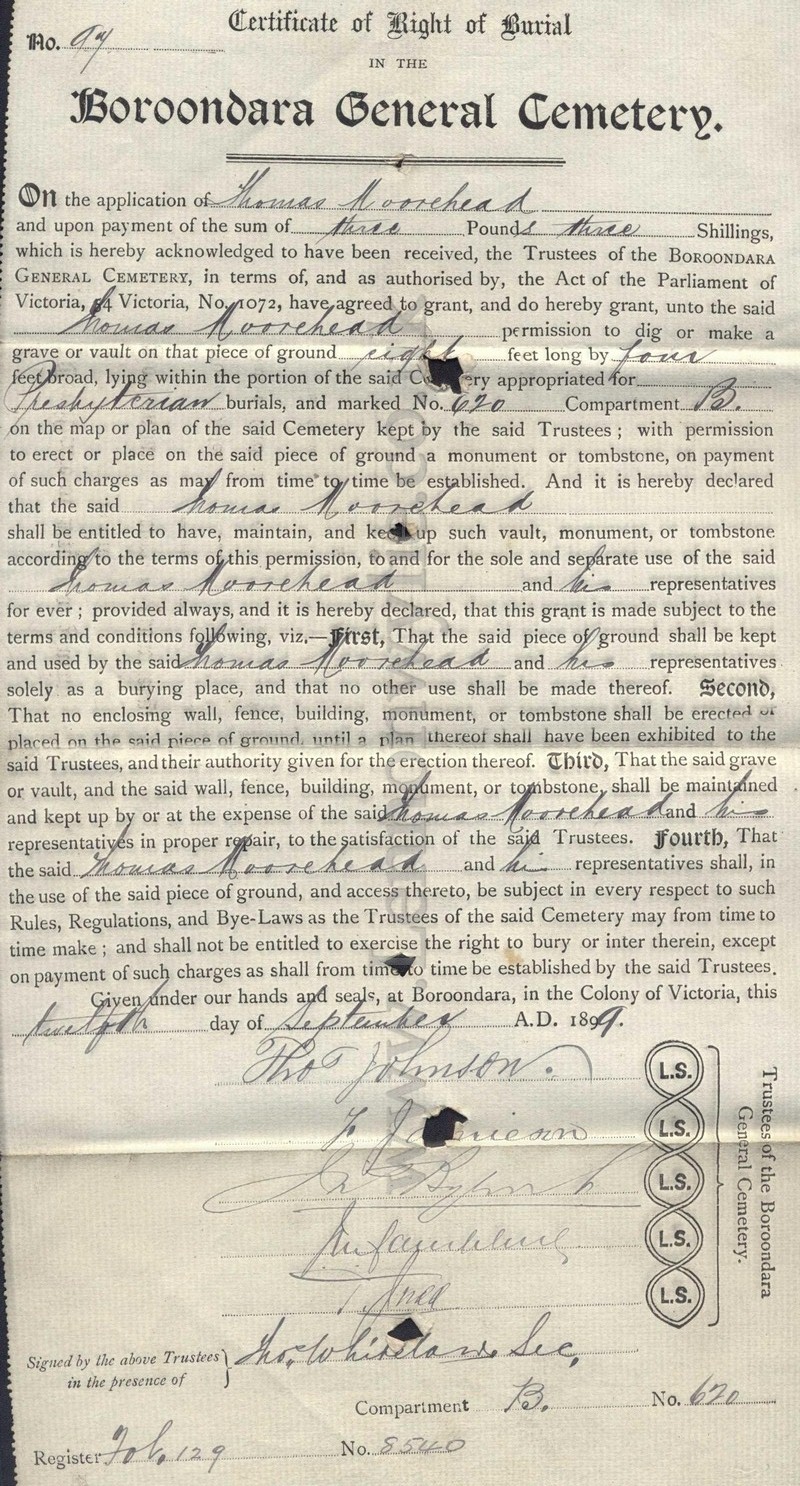 Certificate of Right of Burial
No. 97
IN THE
Boroondara General Cemetery.
On the application of Thomas Moorehead
and upon payment of the sum of three Pounds three Shillings,
which is hereby acknowledged to have been received, the Trustees of the BOROONDARA
GENERAL CEMETERY, in terms of, and as authorised by, the Act of the Parliament of
Victoria, 54 Victoria, No. 1072, have agreed to grant, and do hereby grant, unto the said
Thomas Moorehead permission to dig or make a
grave or vault on that piece of ground eight feet long by four
feet broad, lying within the portion of the said Cemetery appropriated for
Presbyterian burials, and marked No. 620 Compartment B.
on the map or plan of the said Cemetery kept by the said Trustees ; with permission
to erect or place on the said piece of ground a monument or tombstone, on payment
of such charges as may from time to time be established. And it is hereby declared
that the said Thomas Moorehead
shall be entitled to have, maintain, and keep up such vault, monument, or tombstone
according to the terms of this permission, to and for the sole and separate use of the said
Thomas Moorehead and his representatives
for ever ; provided always, and it is hereby declared, that this grant is made subject to the
terms and conditions following, viz.—First, That the said piece of ground shall be kept
and used by the said Thomas Moorehead and his representatives
solely as a burying place, and that no other use shall be made thereof. Second,
That no enclosing wall, fence, building, monument, or tombstone shall be erected or
placed on the said piece of ground, until a plan thereof shall have been exhibited to the
said Trustees, and their authority given for the erection thereof. Third, That the said grave
or vault, and the said wall, fence, building, monument, or tombstone, shall be maintained
and kept up by or at the expense of the said Thomas Moorehead and his
representatives in proper repair, to the satisfaction of the said Trustees. Fourth, That
the said Thomas Moorehead and his representatives shall, in
the use of the said piece of ground, and access thereto, be subject in every respect to such
Rules, Regulations, and Bye-Laws as the Trustees of the said Cemetery may from time to
time make ; and shall not be entitled to exercise the right to bury or inter therein, except
on payment of such charges as shall from time to time be established by the said Trustees.
Given under our hands and seals, at Boroondara, in the Colony of Victoria, this
twelfth day of September A.D. 1899.
Thos Johnson. L.S.
L.S.
L.S.
L.S.
L.S.
Trustees of the Boroondara
General Cemetery.
Signed by the above Trustees
in the presence of
Sec.
Compartment B. No. 620
Register Fol. 129 No. 8540